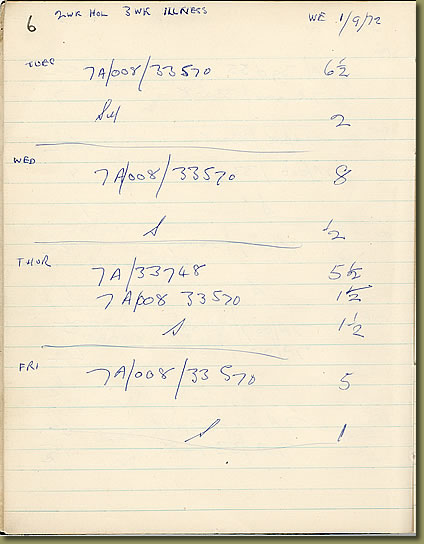 6 2WK HOL 3 WK ILLNESS WE 1/9/72
TUES 7A/008/33570 6½
2
WED 7A/008/33570 8
S ½
THUR 7A/33748 5½
7A/008 33570 1½
S 1½
FRI 7A/008/33570 5
S 1